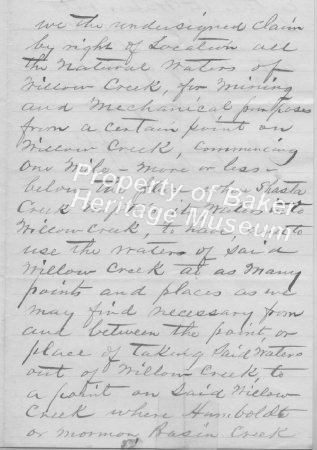 we the undersigned claim
by right of Location all
the Natural Waters of
Willow Creek, for Mining
and Mechanical purposes
from a certain point on
Willow Creek, commencing
One Mile More or less
below Shasta
Creek waters into
Willow Creek, to
use the waters of said
Willow Creek at as Many
points and places as we
may find necessary from
and between the point or
place of taking said Waters
out of Willow Creek, to
a point on said Willow
Creek where Humboldt
or mormon Basin Creek
Property of Baker
Heritage Museum